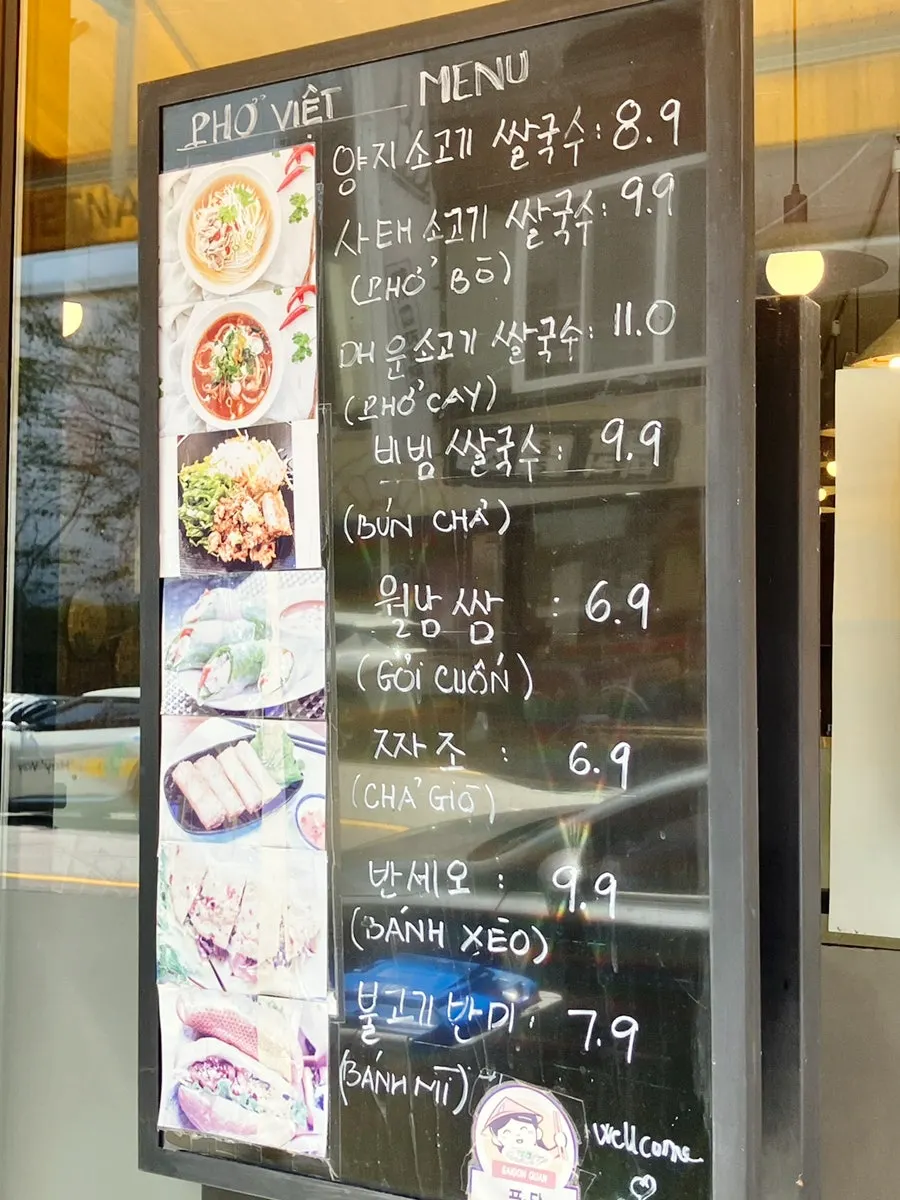 PHỞ VIỆT MENU
양지소고기 쌀국수: 8.9
사태소고기 쌀국수: 9.9
(PHỞ BÒ)
매운소고기 쌀국수: 11.0
(PHỞ CAY)
비빔쌀국수: 9.9
(BÚN CHẢ)
월남쌈 : 6.9
(GỎI CUỐN)
짜조 : 6.9
(CHẢ GIÒ)
반세오 : 9.9
(BÁNH XÈO)
불고기 반미: 7.9
(BÁNH MÌ)
wellcome
SAIGON QUAN